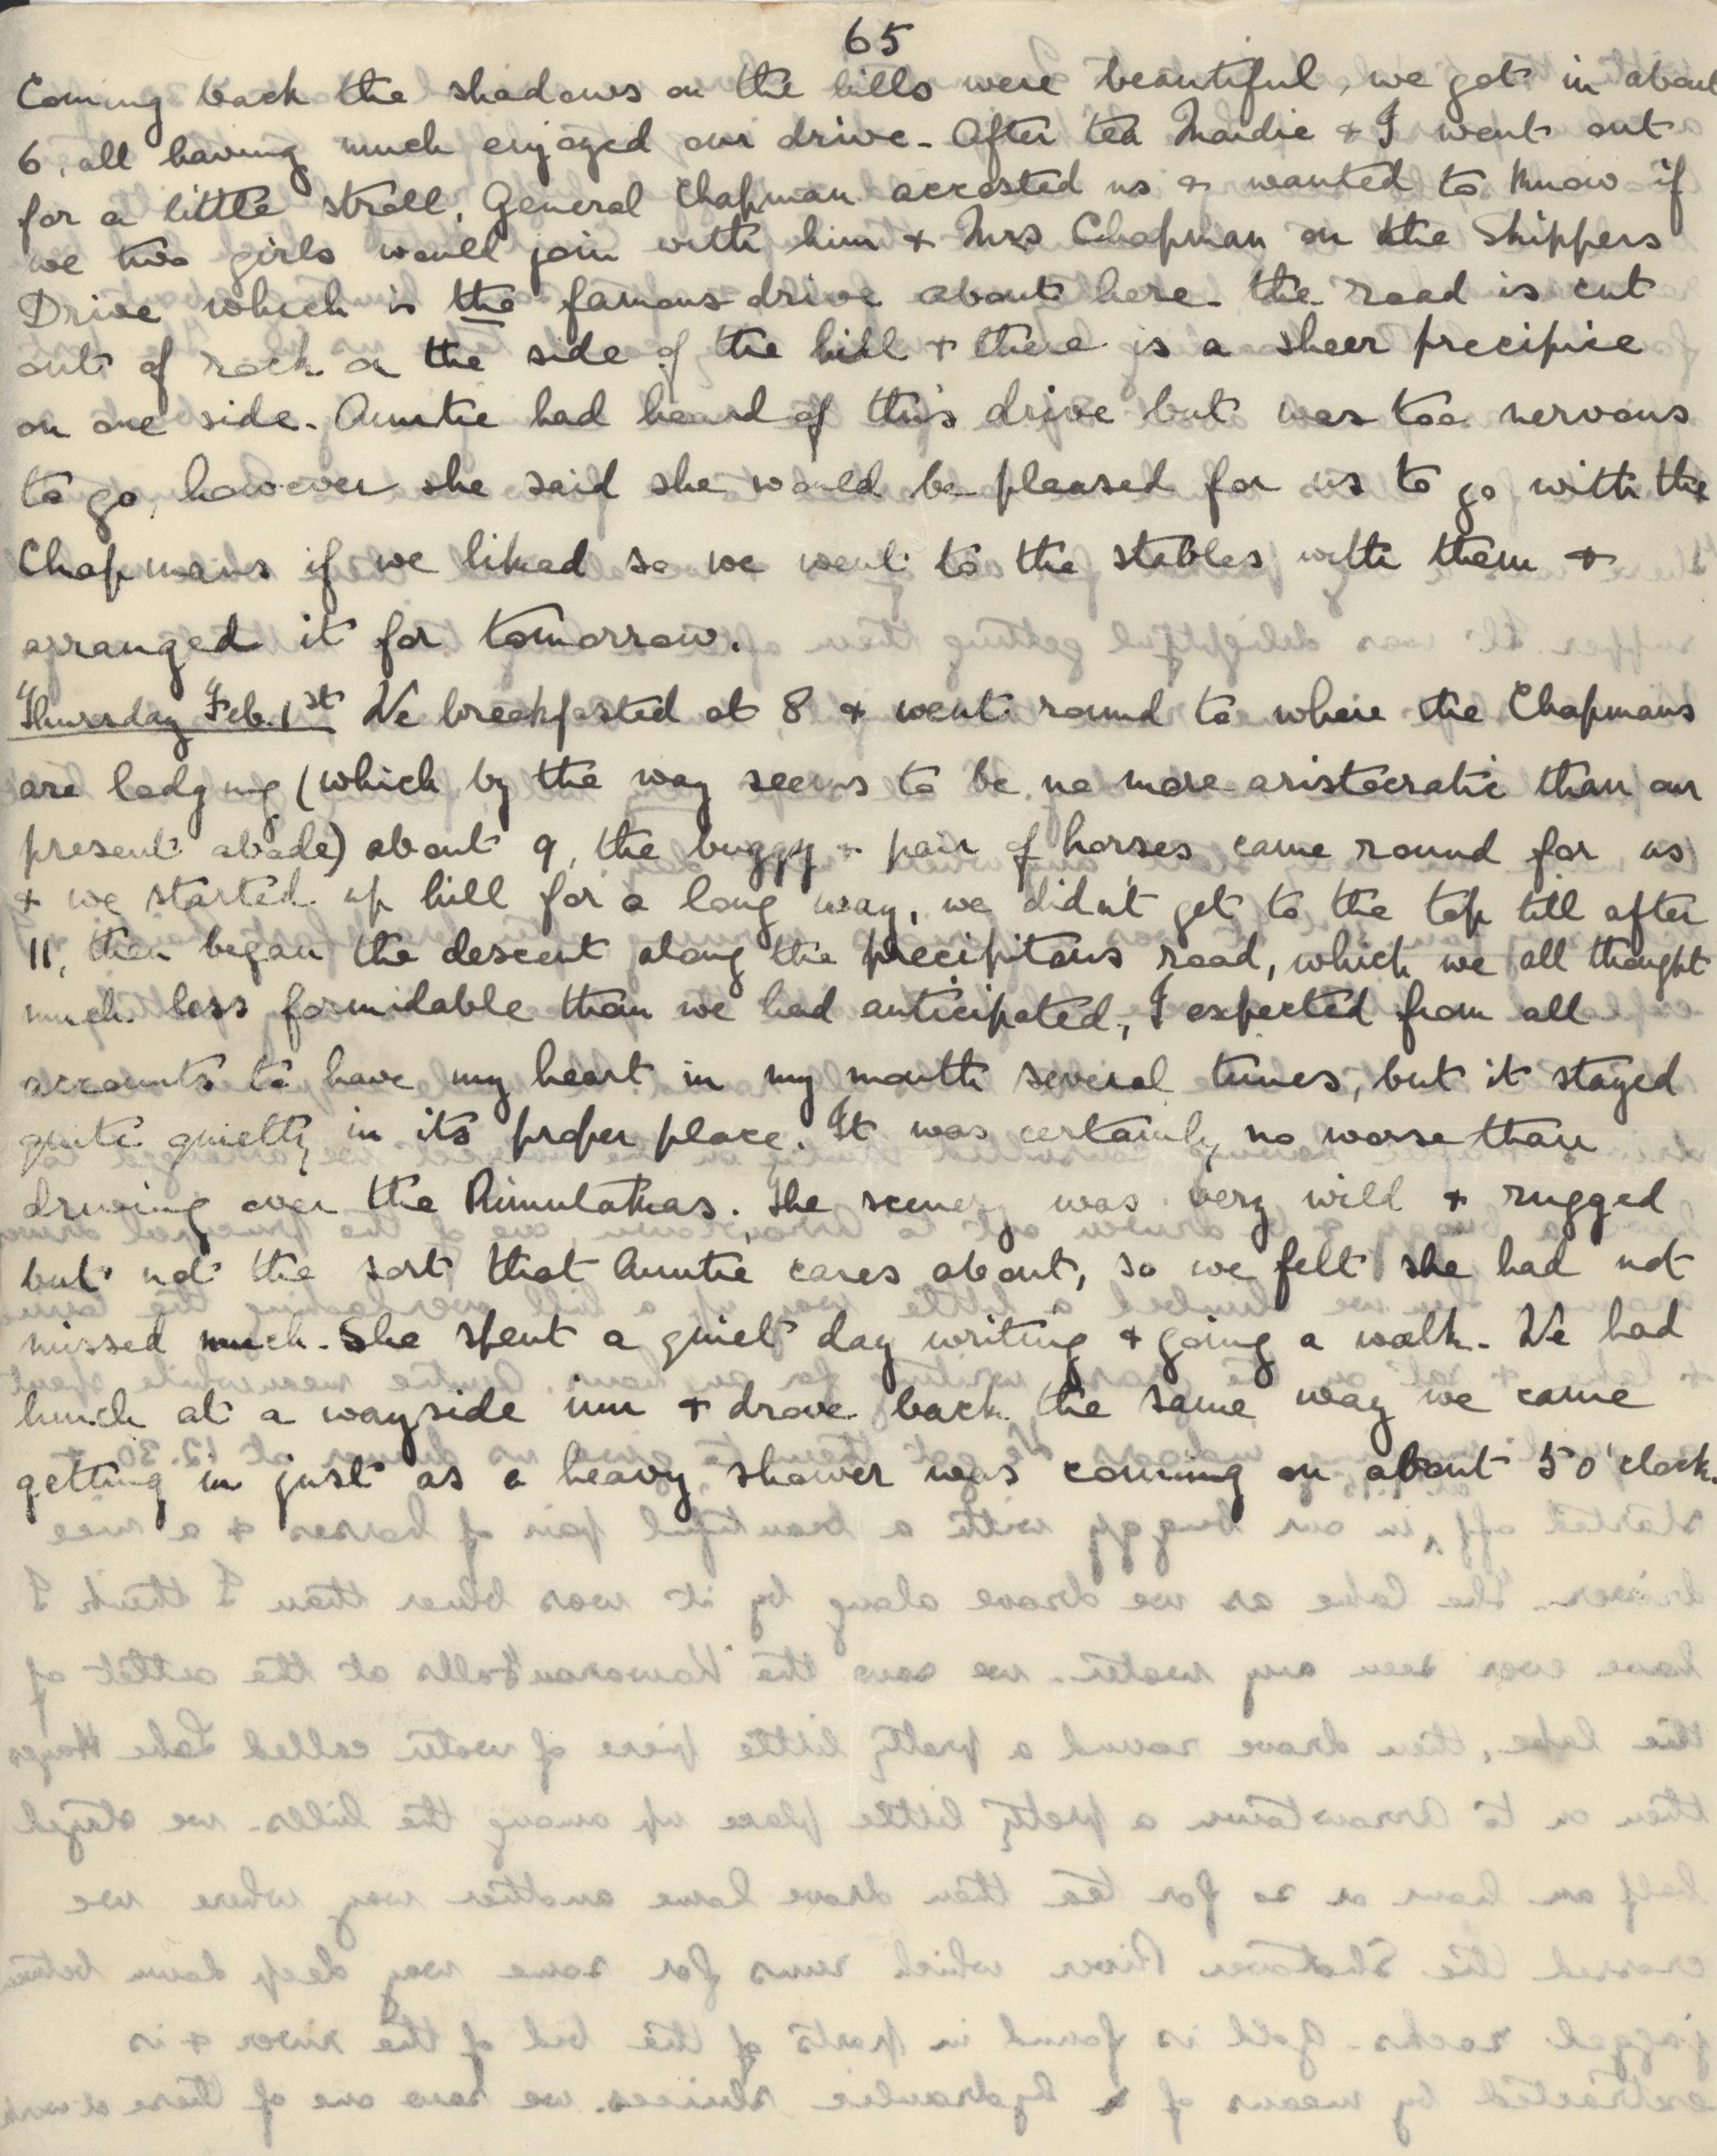 65
Coming back the shadows on the hills were beautiful, we got in about
6, all having much enjoyed our drive - After tea Maidie & I went out
for a little stroll, General Chapman accosted us & wanted to know if
we two girls would join with him & Mrs Chapman on the Skippers
Drive which is the famous drive about here - the road is cut
out of rock on the side of the hill & there is a sheer precipice
on one side - Auntie had heard of this drive but was too nervous
to go, however she said she would be pleased for us to go with the
Chapmans if we liked so we went to the stables with them &
arranged it for tomorrow.
Thursday Feb. 1st We breakfasted at 8 & went round to where the Chapmans
are lodging (which by the way seems to be no more aristocratic than our
present abode) about 9, the buggy & pair of horses came round for us
& we started up hill for a long way, we didn't get to the top till after
11, then began the descent along the precipitous road, which we all thought
much less formidable than we had anticipated, I expected from all
accounts to have my heart in my mouth several times, but it stayed
quite quietly in its proper place. It was certainly no worse than
driving over the Rimutakas. The scenery was very wild & rugged
but not the sort that Auntie cares about, so we felt she had not
missed much - She spent a quiet day writing & going a walk - We had
lunch at a wayside inn & drove back the same way we came
getting in just as a heavy shower was coming on about 5 o'clock.